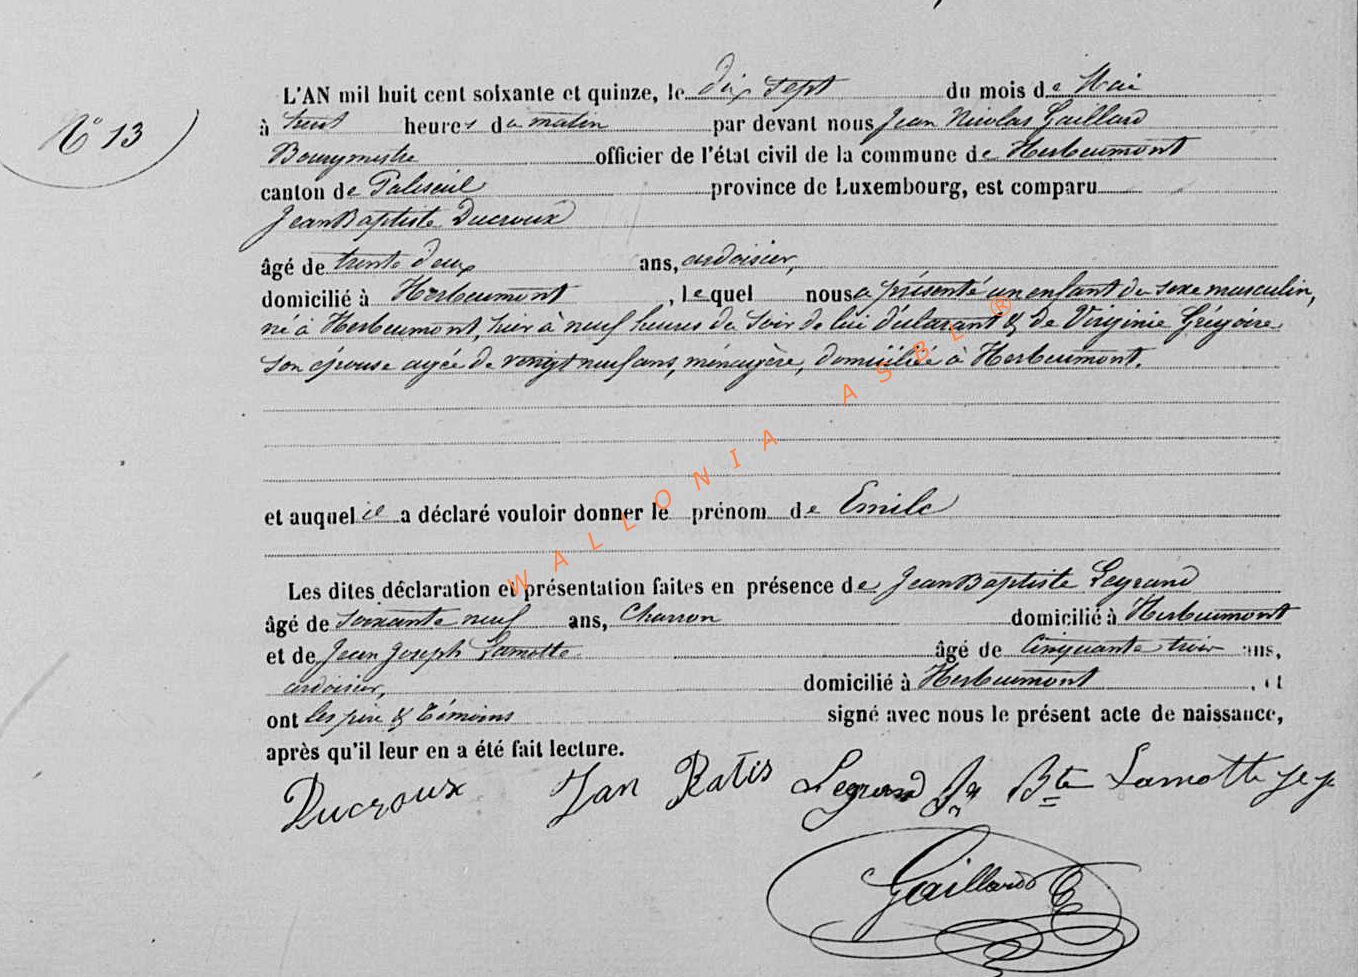 N° 13
L'AN mil huit cent soixante et quinze, le dix sept du mois de Mai
à huit heures du matin par devant nous Jean Nicolas Gaillard
Bourgmestre officier de l'état civil de la commune de Herbeumont
canton de Paliseul province de Luxembourg, est comparu
Jean Baptiste Ducroux
âgé de trente deux ans, ardoisier,
domicilié à Herbeumont, lequel nous a présenté un enfant du sexe masculin,
né à Herbeumont, hier à neuf heures du soir de lui déclarant & de Virginie Grégoire
son épouse agée de vingt neuf ans, ménagère, domiciliée à Herbeumont.
et auquel il a déclaré vouloir donner le prénom de Emile
Les dites déclaration et présentation faites en présence de Jean Baptiste Legrand
âgé de soixante neuf ans, Charron domicilié à Herbeumont
et de Jean Joseph Lamotte âgé de Cinquante trois ans,
ardoisier, domicilié à Herbeumont, et
ont les père & témoins signé avec nous le présent acte de naissance,
après qu'il leur en a été fait lecture.
Ducroux Jan Batis Legrand Jn Bte Lamotte je j
Gaillard
WALLONIA ASBL ®